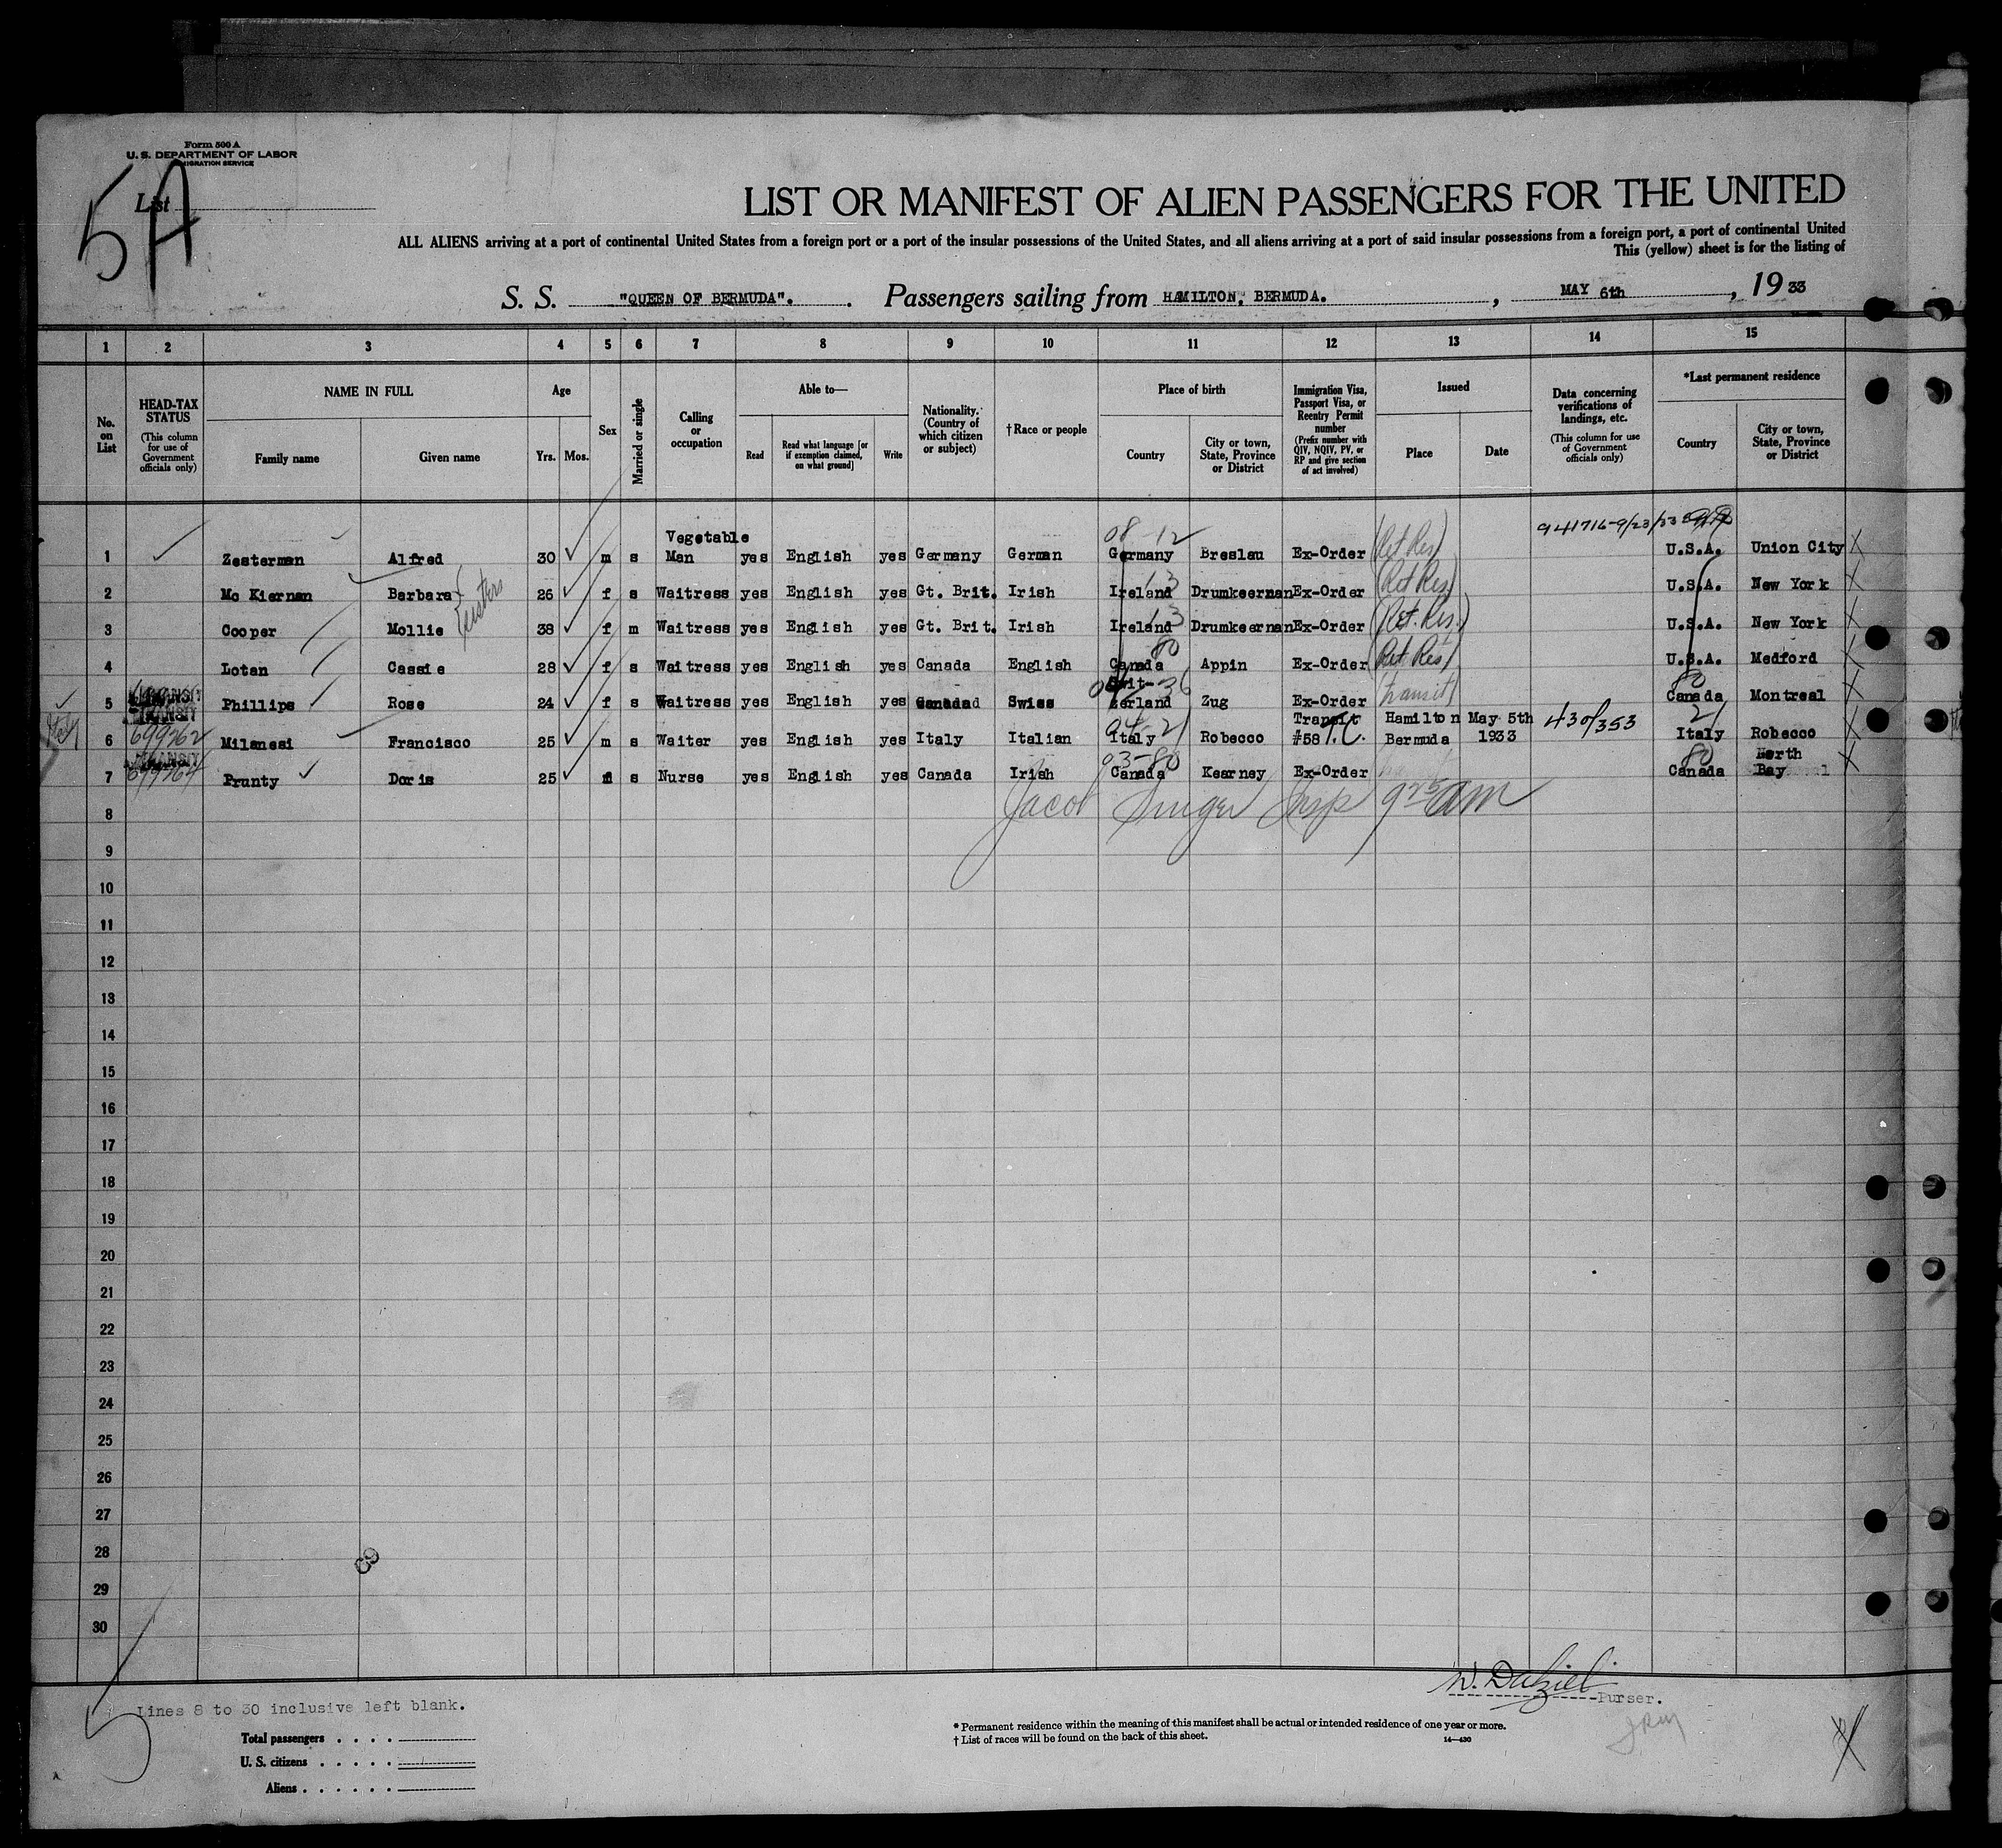 Form 500 A
U. S. DEPARTMENT OF LABOR
IMMIGRATION SERVICE
List
5A
LIST OR MANIFEST OF ALIEN PASSENGERS FOR THE UNITED
ALL ALIENS arriving at a port of continental United States from a foreign port or a port of the insular possessions of the United States, and all aliens arriving at a port of said insular possessions from a foreign port, a port of continental United
This (yellow) sheet is for the listing of
S. S. "QUEEN OF BERMUDA". Passengers sailing from HAMILTON, BERMUDA. , MAY 6th , 1933
1 2 3 4 5 6 7 8 9 10 11 12 13 14 15
No. on List
HEAD-TAX STATUS (This column for use of Government officials only)
NAME IN FULL Family name Given name
Age Yrs. Mos.
Sex
Married or single
Calling or occupation
Able to— Read Read what language [or if exemption claimed, on what ground] Write
Nationality. (Country of which citizen or subject)
†Race or people
Place of birth Country City or town, State, Province or District
Immigration Visa, Passport Visa, or Reentry Permit number (Prefix number with QIV, NQIV, PV, or RP and give section of act involved)
Issued Place Date
Data concerning verifications of landings, etc. (This column for use of Government officials only)
*Last permanent residence Country City or town, State, Province or District
08-12 941716-9/23/33
1 Zesterman Alfred 30 m s Vegetable Man yes English yes Germany German Germany Breslau Ex-Order (Ret Res) U.S.A. Union City X
2 Mc Kiernan Barbara sisters 26 f s Waitress yes English yes Gt. Brit. Irish Ireland 13 Drumkeernan Ex-Order (Ret Res) U.S.A. New York X
3 Cooper Mollie 38 f m Waitress yes English yes Gt. Brit. Irish Ireland 13 Drumkeernan Ex-Order (Ret. Res.) U.S.A. New York X
4 Lotan Cassie 28 f s Waitress yes English yes Canada English Canada 80 Appin Ex-Order (Ret Res) U.S.A. Medford X
5 TRANSIT Phillips Rose 24 f s Waitress yes English yes Canada Swiss Swit-zerland 36 Zug Ex-Order (transit) Canada 80 Montreal X
6 Italy TRANSIT 699262 Milanesi Francisco 25 m s Waiter yes English yes Italy Italian Italy 04-21 Robecco Transit #58 Hamilton Bermuda May 5th 1933 430/353 Italy 21 Robecco X
7 TRANSIT 699264 Prunty Doris 25 f s Nurse yes English yes Canada Irish Canada 93-80 Kearney Ex-Order Canada 80 North Bay X
8 Jacob Singer Insp 9 25 am
9
10
11
12
13
14
15
16
17
18
19
20
21
22
23
24
25
26
27
28
29
30
W. Dalziel Purser.
Lines 8 to 30 inclusive left blank.
5
Total passengers
U. S. citizens
Aliens
* Permanent residence within the meaning of this manifest shall be actual or intended residence of one year or more.
† List of races will be found on the back of this sheet.
14—430